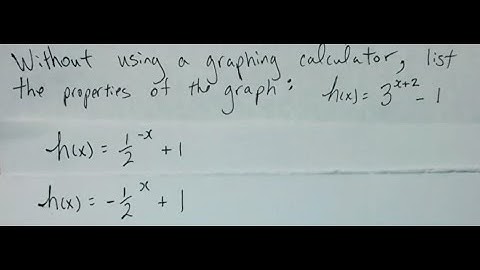 Without using a graphing calculator, list
the properties of the graph: h(x) = 3^(x+2) - 1
h(x) = 1/2^(-x) + 1
h(x) = -1/2^x + 1